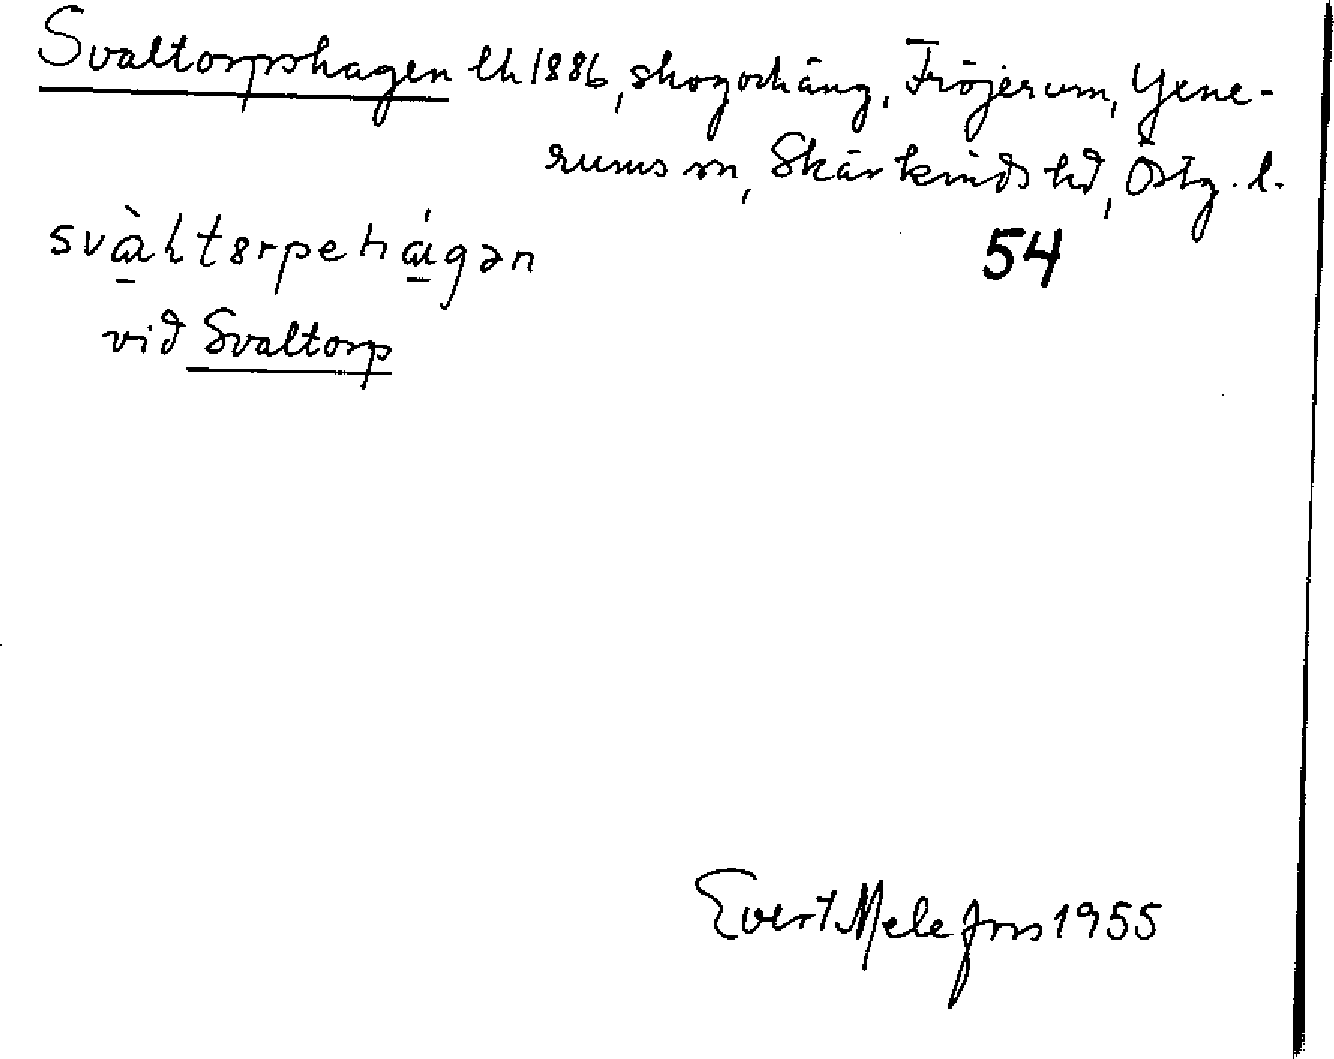 Svaltorpshagen lh 1886, skog och äng, Fröjerum, Yxne-
rums sn, Skärkinds hd, Östg. l.
54
vid Svaltorp
Evert Melefors 1955